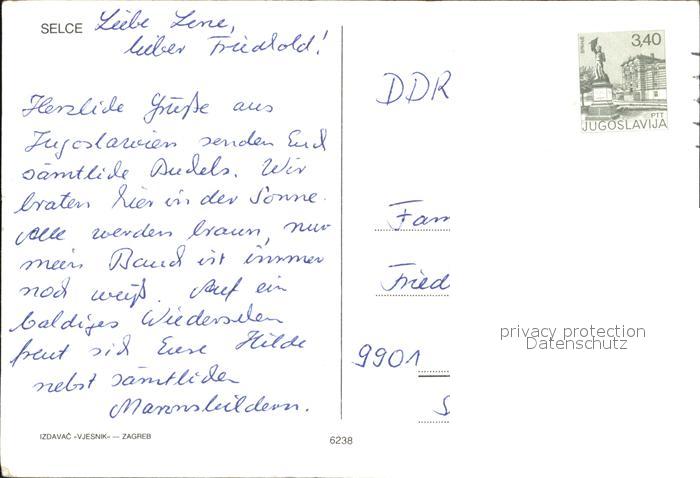 SELCE
Liebe Lene,
lieber Friedhold!
Herzliche Grüße aus
Jugoslawien senden Euch
sämtliche Dudels. Wir
braten hier in der Sonne.
Alle werden braun, nur
mein Bauch ist immer
noch weiß. Auf ein
baldiges Wiedersehen
freut sich Eure Hilde
nebst sämtlichen
Mannsbildern.
IZDAVAČ «VJESNIK» — ZAGREB
6238
DDR
Fam
Fried
9901
S
3,40
PTT
JUGOSLAVIJA
privacy protection
Datenschutz